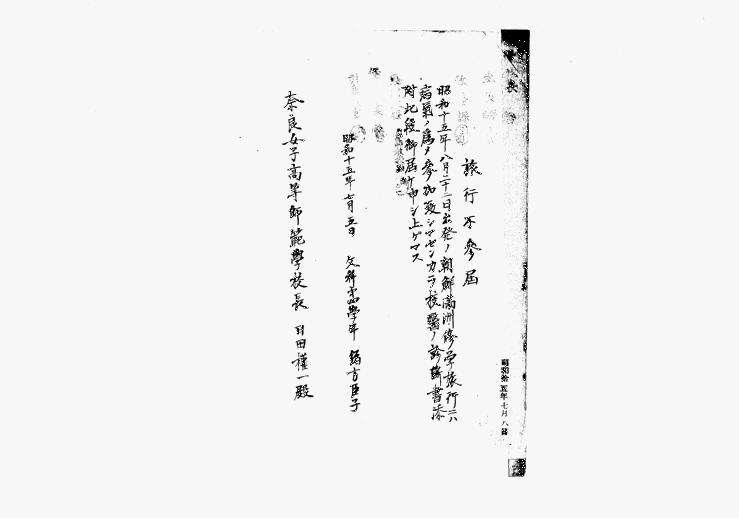 旅行不參届
昭和十五年八月二十二日出発ノ朝鮮満洲修学旅行ニハ
病氣ノ爲メ參加致シマセンカラ校醫ノ診断書添
附此段御届ケ申シ上ゲマス
昭和十五年七月五日 文科第四學年 緒方 子
奈良女子高等師範學校長 田權一殿
昭和拾五年七月八